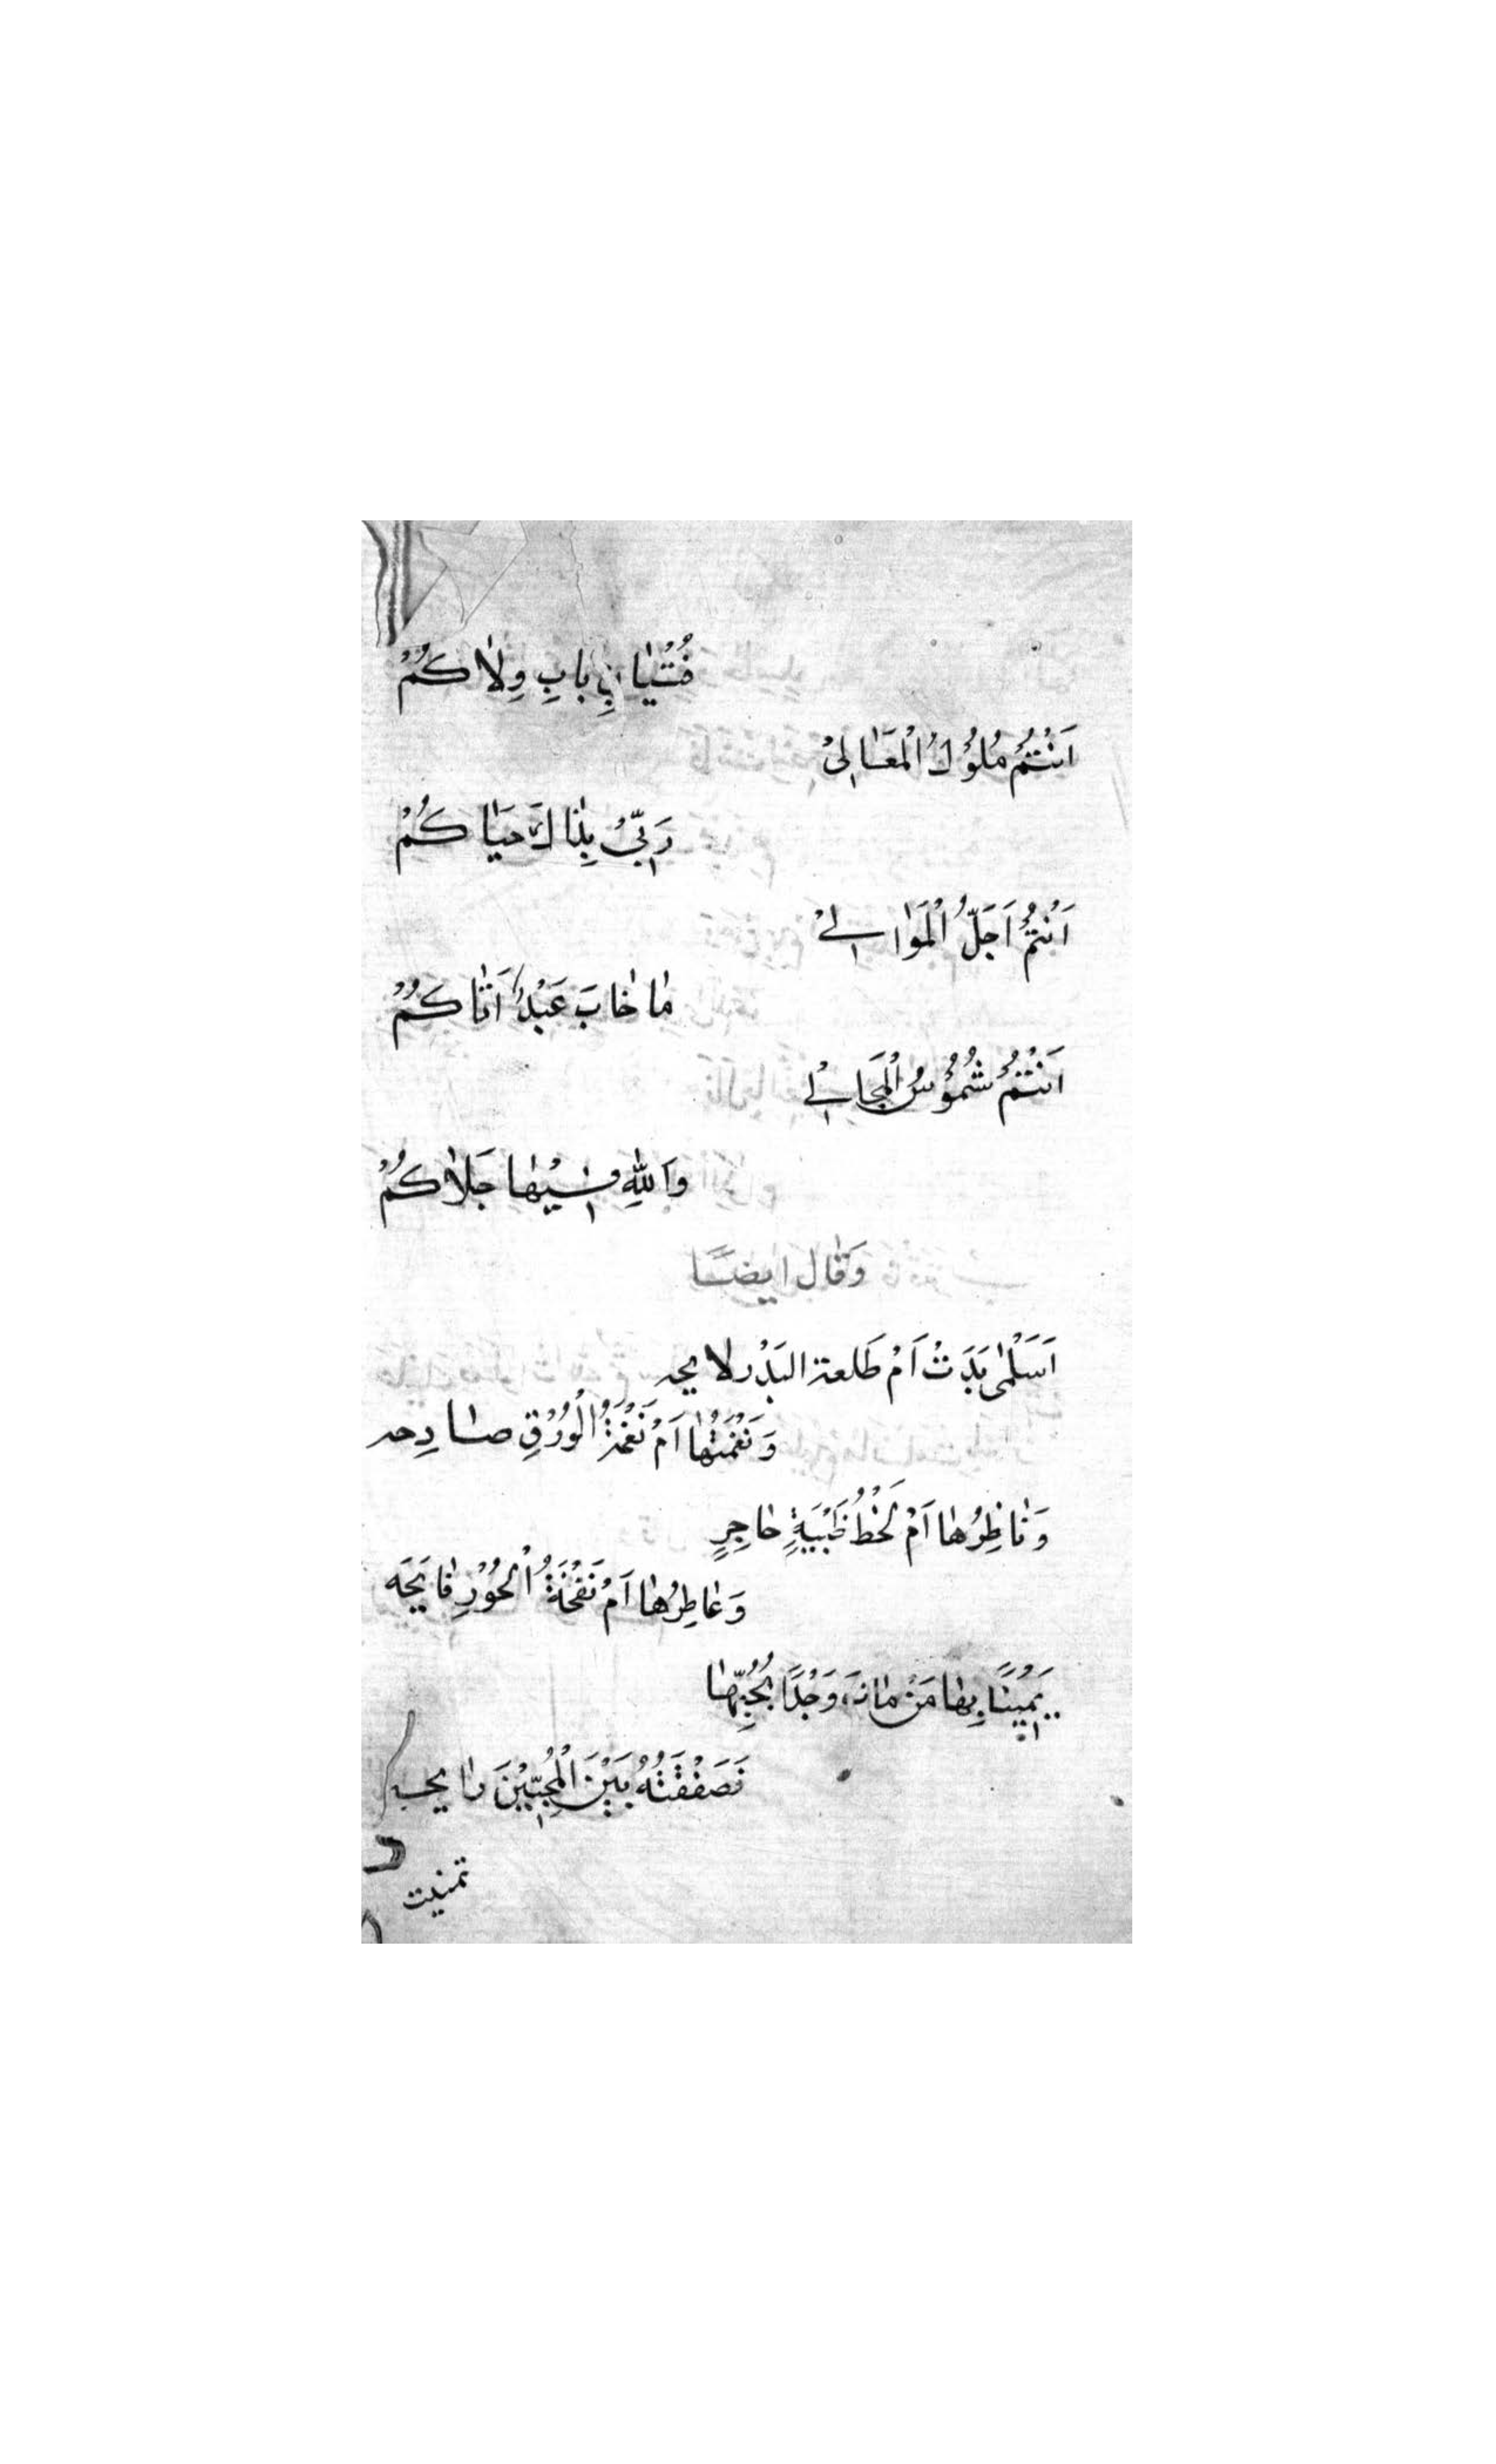 فُتُيٰا بِبابِ وِلاٰكُمُوْ
اَنْتُمْ مُلُوْكُ الْمَعٰالِيْ
رَبِّيْ بِذٰاكَ حَيٰاكُمُوْ
اَنْتُمْ اَجَلُّ الْمَوٰالِيْ
مٰا خٰابَ عَبْدٌ اَتٰاكُمُوْ
اَنْتُمْ شُمُوْسُ الْمَجَالِيْ
وَاللّٰهِ فِيْهٰا جَلاٰكُمُوْ
وَقٰالَ ايضًا
اَسَلْمٰى بَدَتْ اَمْ طَلعة البَدْر لايحه
وَنَغْمَتُهٰا اَمْ نَغْمَةُ الْوُرْقِ صٰادِحه
وَنٰاظِرُهٰا اَمْ لَحْظُ ظَبْيَةِ حٰاجِرٍ
وَعٰاطِرُهٰا اَمْ نَفْحَةُ الْحُوْرِ فٰايَحَه
يَمِيْنًا بِهٰا مَنْ مٰاتَ وَجْدًا بِحُبِّهٰا
فَصَفْقَتُهُ بَيْنَ الْمُحِبِّيْنَ رٰايحه
تمنيت